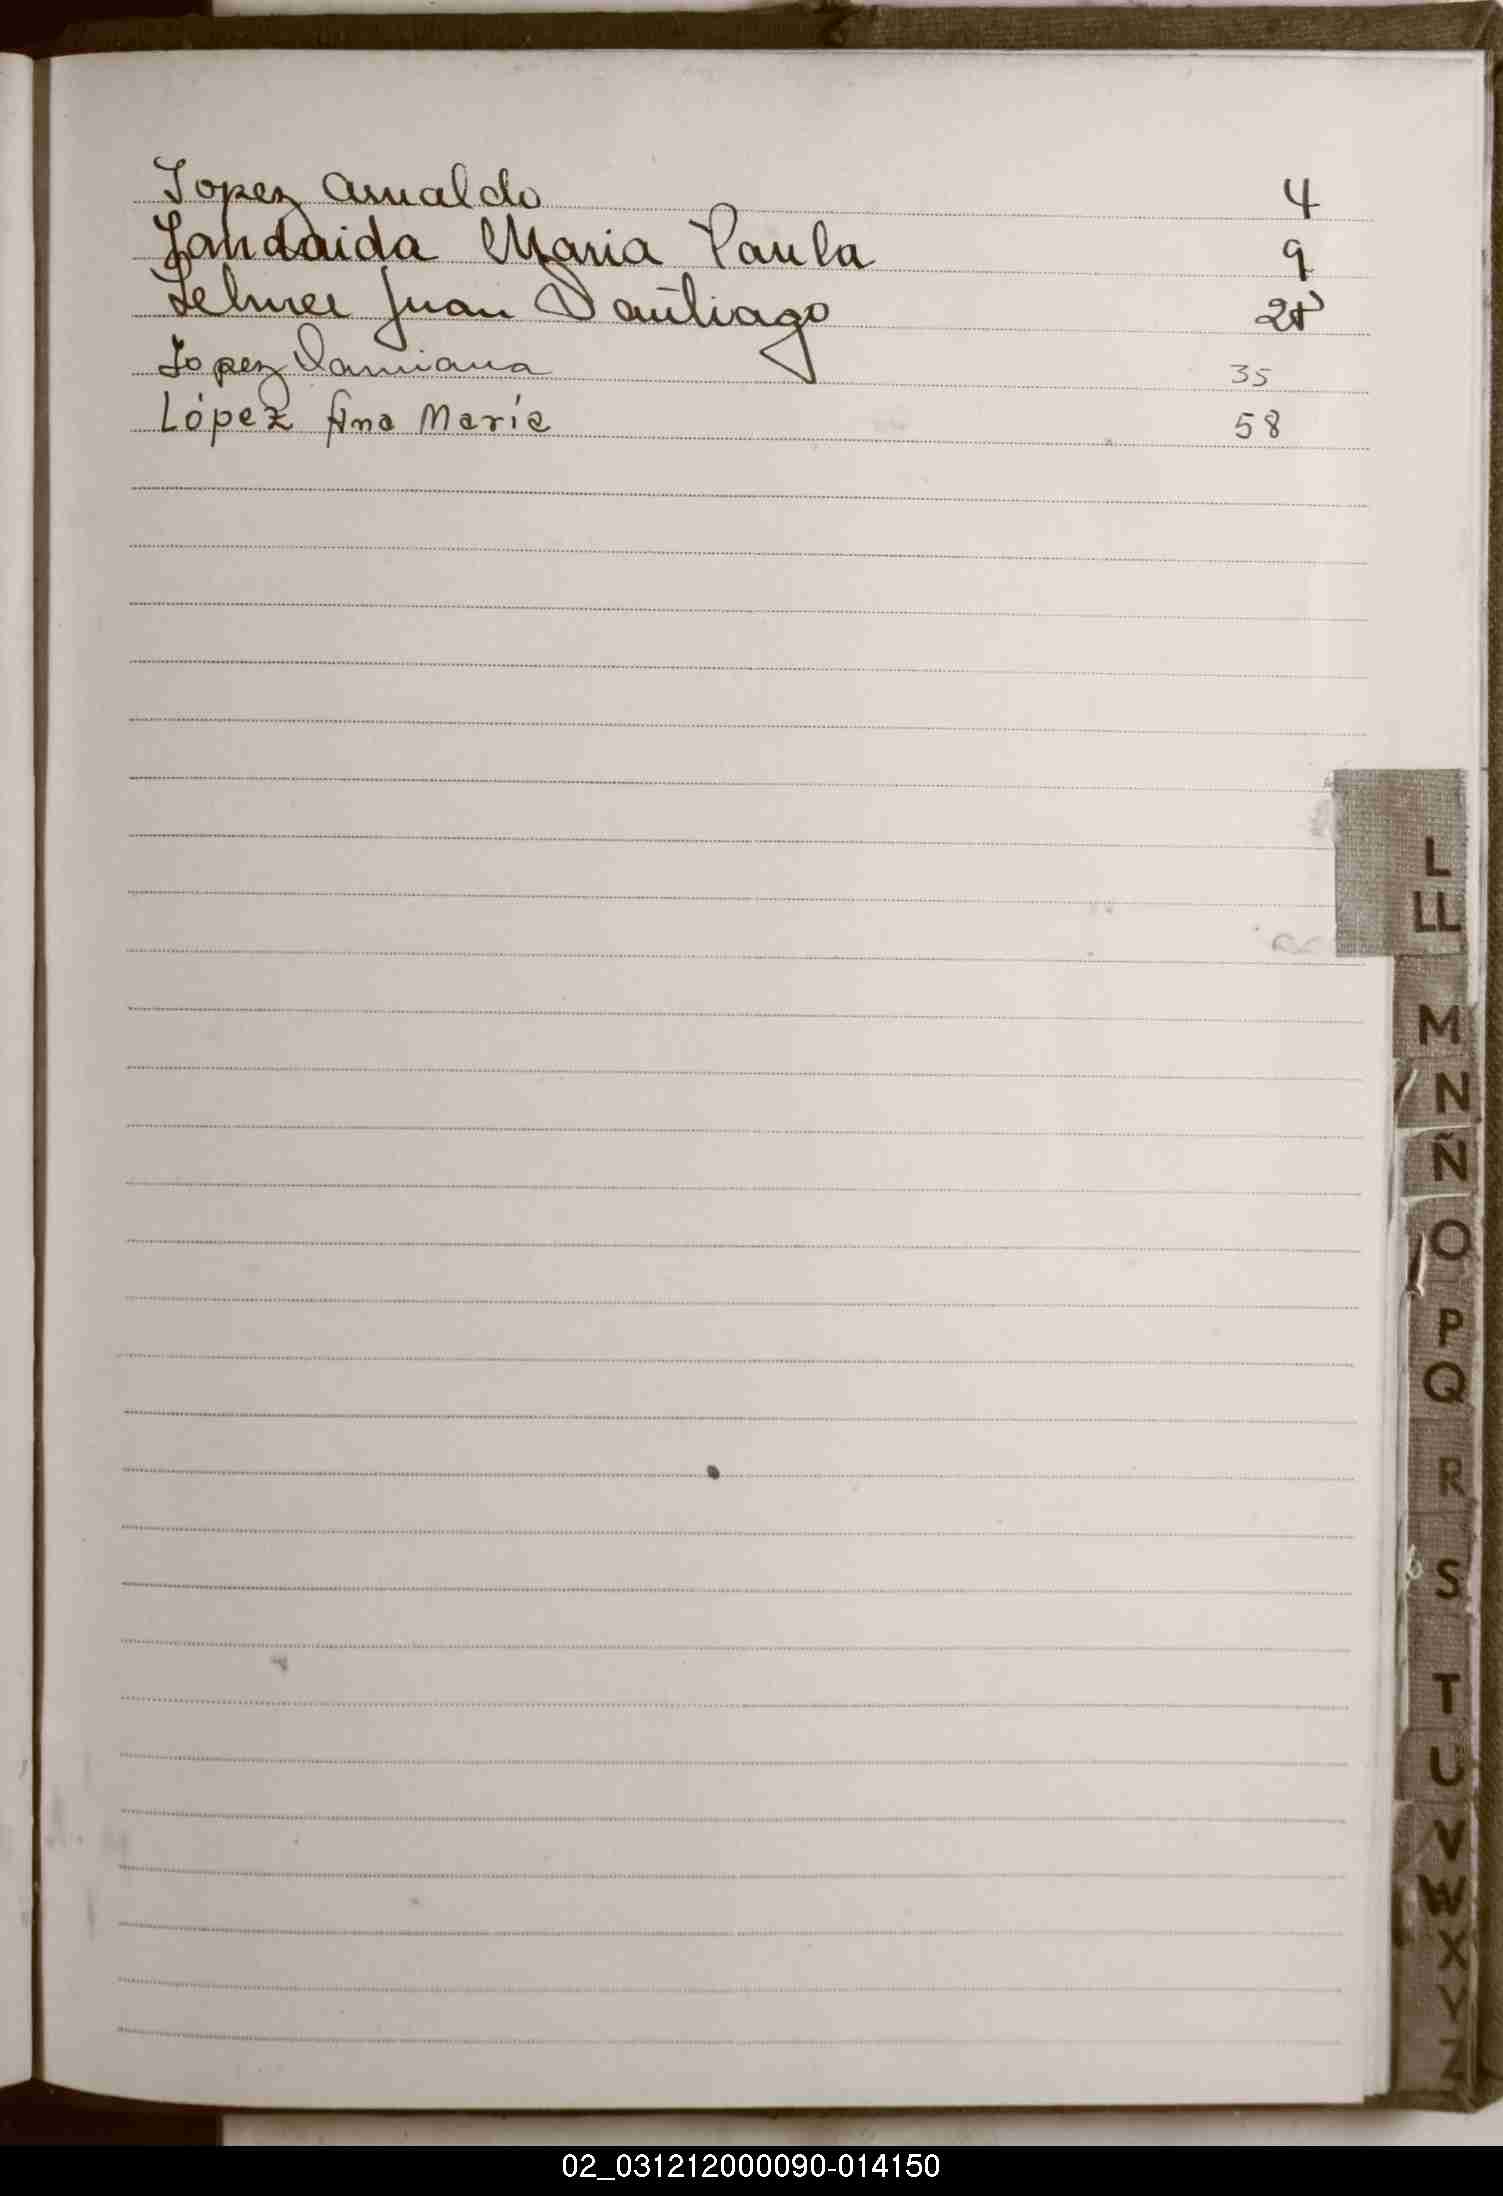 Lopez Arnaldo 4
Landaida Maria Paula 9
Juan Santiago 28
Lopez Damiana 35
López Ana María 58
L
LL
M
N
Ñ
O
P
Q
R
S
T
U
V
W
X
Y
Z
02_031212000090-014150